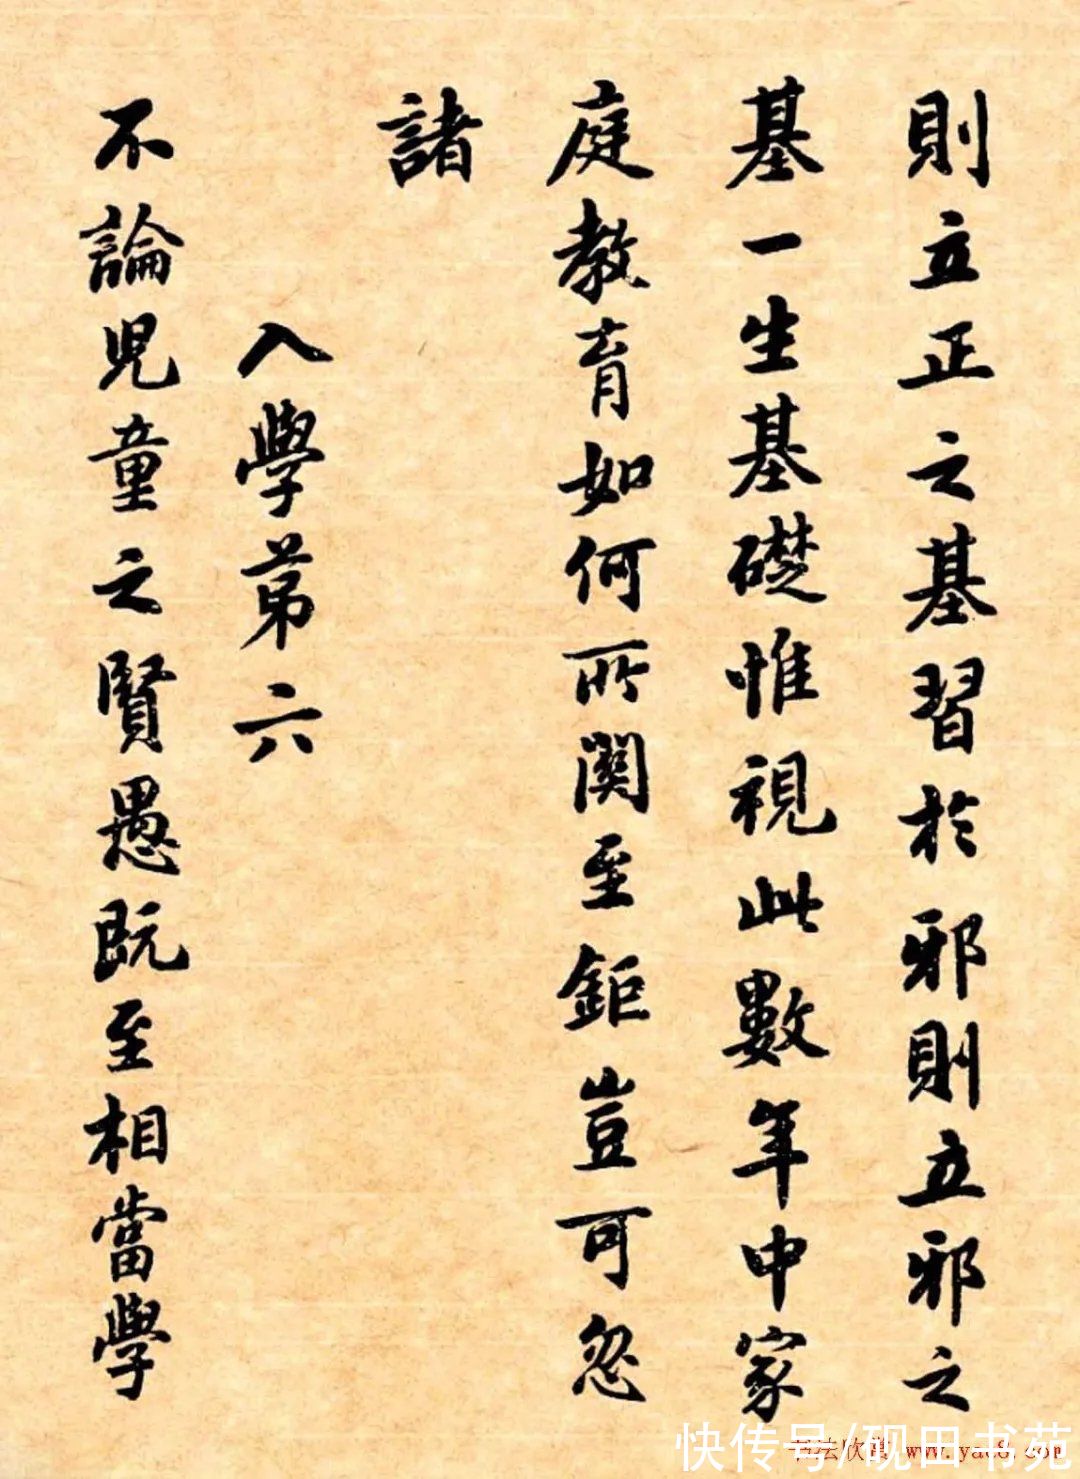 則立正之基習於邪則立邪之
基一生基礎惟視此數年中家
庭教育如何所關至鉅豈可忽
諸
入學第六
不論兒童之賢愚既至相當學
快传号/砚田书苑
书法欣赏 www.yac8.com